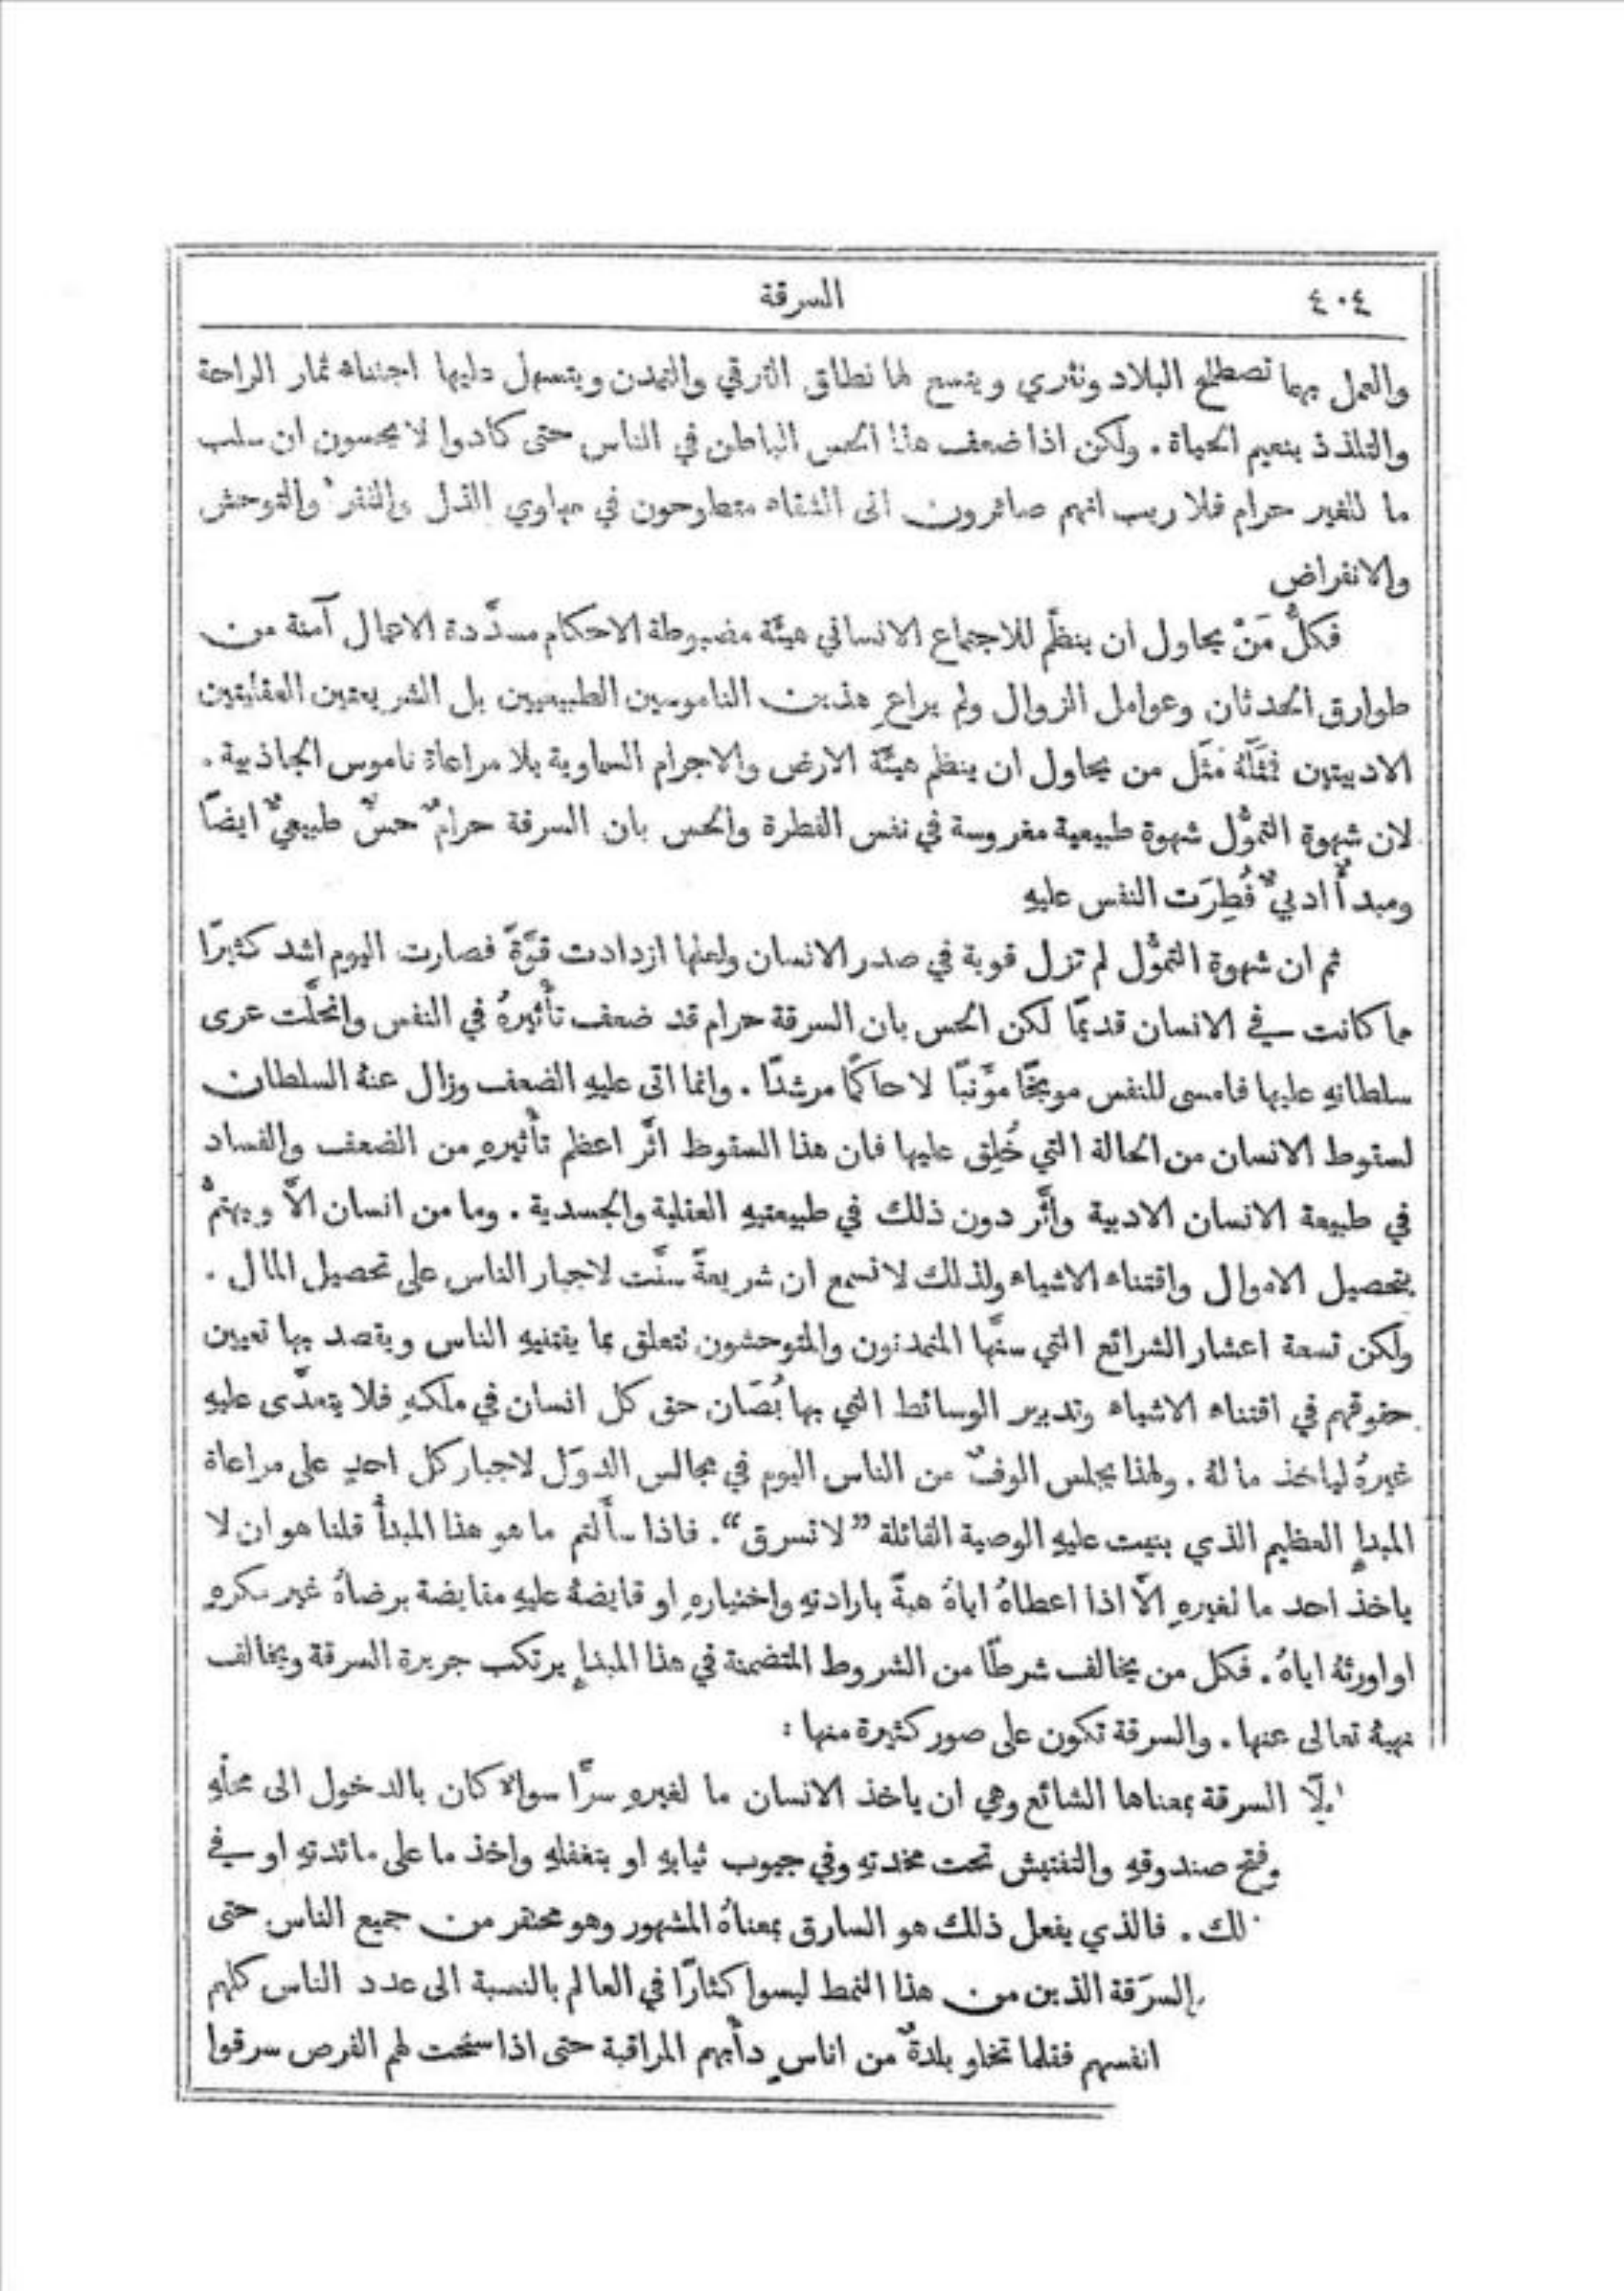 ٤٠٤
السرقة
والعمل بهما تصطلح البلاد وتثري ويتسع لها نطاق الترقي والتمدن ويتسهل عليها اجتناء ثمار الراحة
والتلذذ بنعيم الحياة . ولكن اذا ضعف هذا الحس الباطن في الناس حتى كادوا لا يحسون ان سلب
ما للغير حرام فلا ريب انهم صائرون الى الشقاء متطوحون في مهاوي الذل والفقر والتوحش
والانقراض
فكلُّ مَنْ يحاول ان ينظّم للاجتماع الانساني هيئة مضبوطة الاحكام مسدَّدة الاعمال آمنة من
طوارق الحدثان وعوامل الزوال ولم يراعِ هذين الناموسين الطبيعيين بل الشريعتين العقليتين
الادبيتين فمَثَلُهُ مَثَل من يحاول ان ينظم هيئة الارض والاجرام السماوية بلا مراعاة ناموس الجاذبية .
لان شهوة التموُّل شهوة طبيعية مغروسة في نفس الفطرة والحس بان السرقة حرامٌ حسٌّ طبيعيٌّ ايضًا
ومبدأٌ ادبيٌّ فُطِرَت النفس عليهِ
ثم ان شهوة التموُّل لم تزل قوية في صدر الانسان ولعلها ازدادت قوَّةً فصارت اليوم اشد كثيرًا
مما كانت في الانسان قديمًا لكن الحس بان السرقة حرام قد ضعف تأثيرهُ في النفس وانحلَّت عرى
سلطانهِ عليها فامسى للنفس موبخًا مؤَنبًا لا حاكمًا مرشدًا . وانما اتى عليهِ الضعف وزال عنهُ السلطان
لسقوط الانسان من الحالة التي خُلِق عليها فان هذا السقوط اثَّر اعظم تأثيرهِ من الضعف والفساد
في طبيعة الانسان الادبية وأثَّر دون ذلك في طبيعتيهِ العقلية والجسدية . وما من انسان الَّا ويهتمُّ
بتحصيل الاموال واقتناء الاشياء ولذلك لا نسمع ان شريعةً سنَّت لاجبار الناس على تحصيل المال .
ولكن تسعة اعشار الشرائع التي سنَّها المتمدنون والمتوحشون تتعلق بما يقتنيهِ الناس ويقصد بها تعيين
حقوقهم في اقتناء الاشياء وتدبير الوسائط التي بها يُصَان حق كل انسان في ملكهِ فلا يتعدَّى عليهِ
غيرهُ لياخذ ما لهُ . ولهذا يجلس الوفٌ من الناس اليوم في مجالس الدوَل لاجبار كل احدٍ على مراعاة
المبدإِ العظيم الذي بنيت عليهِ الوصية القائلة ”لا تسرق“ . فاذا سأَلتم ما هو هذا المبدأُ قلنا هو ان لا
ياخذ احد ما لغيرهِ الَّا اذا اعطاهُ اياهُ هبةً بارادتهِ واختيارهِ او قايضهُ عليهِ مقايضة برضاهُ غير مكرهٍ
او اورثهُ اياهُ . فكل من يخالف شرطًا من الشروط المتضمنة في هذا المبدإِ يرتكب جريرة السرقة ويخالف
نهيهُ تعالى عنها . والسرقة تكون على صور كثيرة منها :
اولًا السرقة بمعناها الشائع وهي ان ياخذ الانسان ما لغيرهِ سرًّا سواءٌ كان بالدخول الى محلّهِ
وفتح صندوقهِ والتفتيش تحت مخدتهِ وفي جيوب ثيابهِ او بتغفلهِ واخذ ما على مائدتهِ او في
لك . فالذي يفعل ذلك هو السارق بمعناهُ المشهور وهو محتقر من جميع الناس حتى
السرَقة الذين من هذا النمط ليسوا كثارًا في العالم بالنسبة الى عدد الناس كلهم
انفسهم فقلما تخلو بلدةٌ من اناسٍ دأبهم المراقبة حتى اذا سنحت لهم الفرص سرقوا